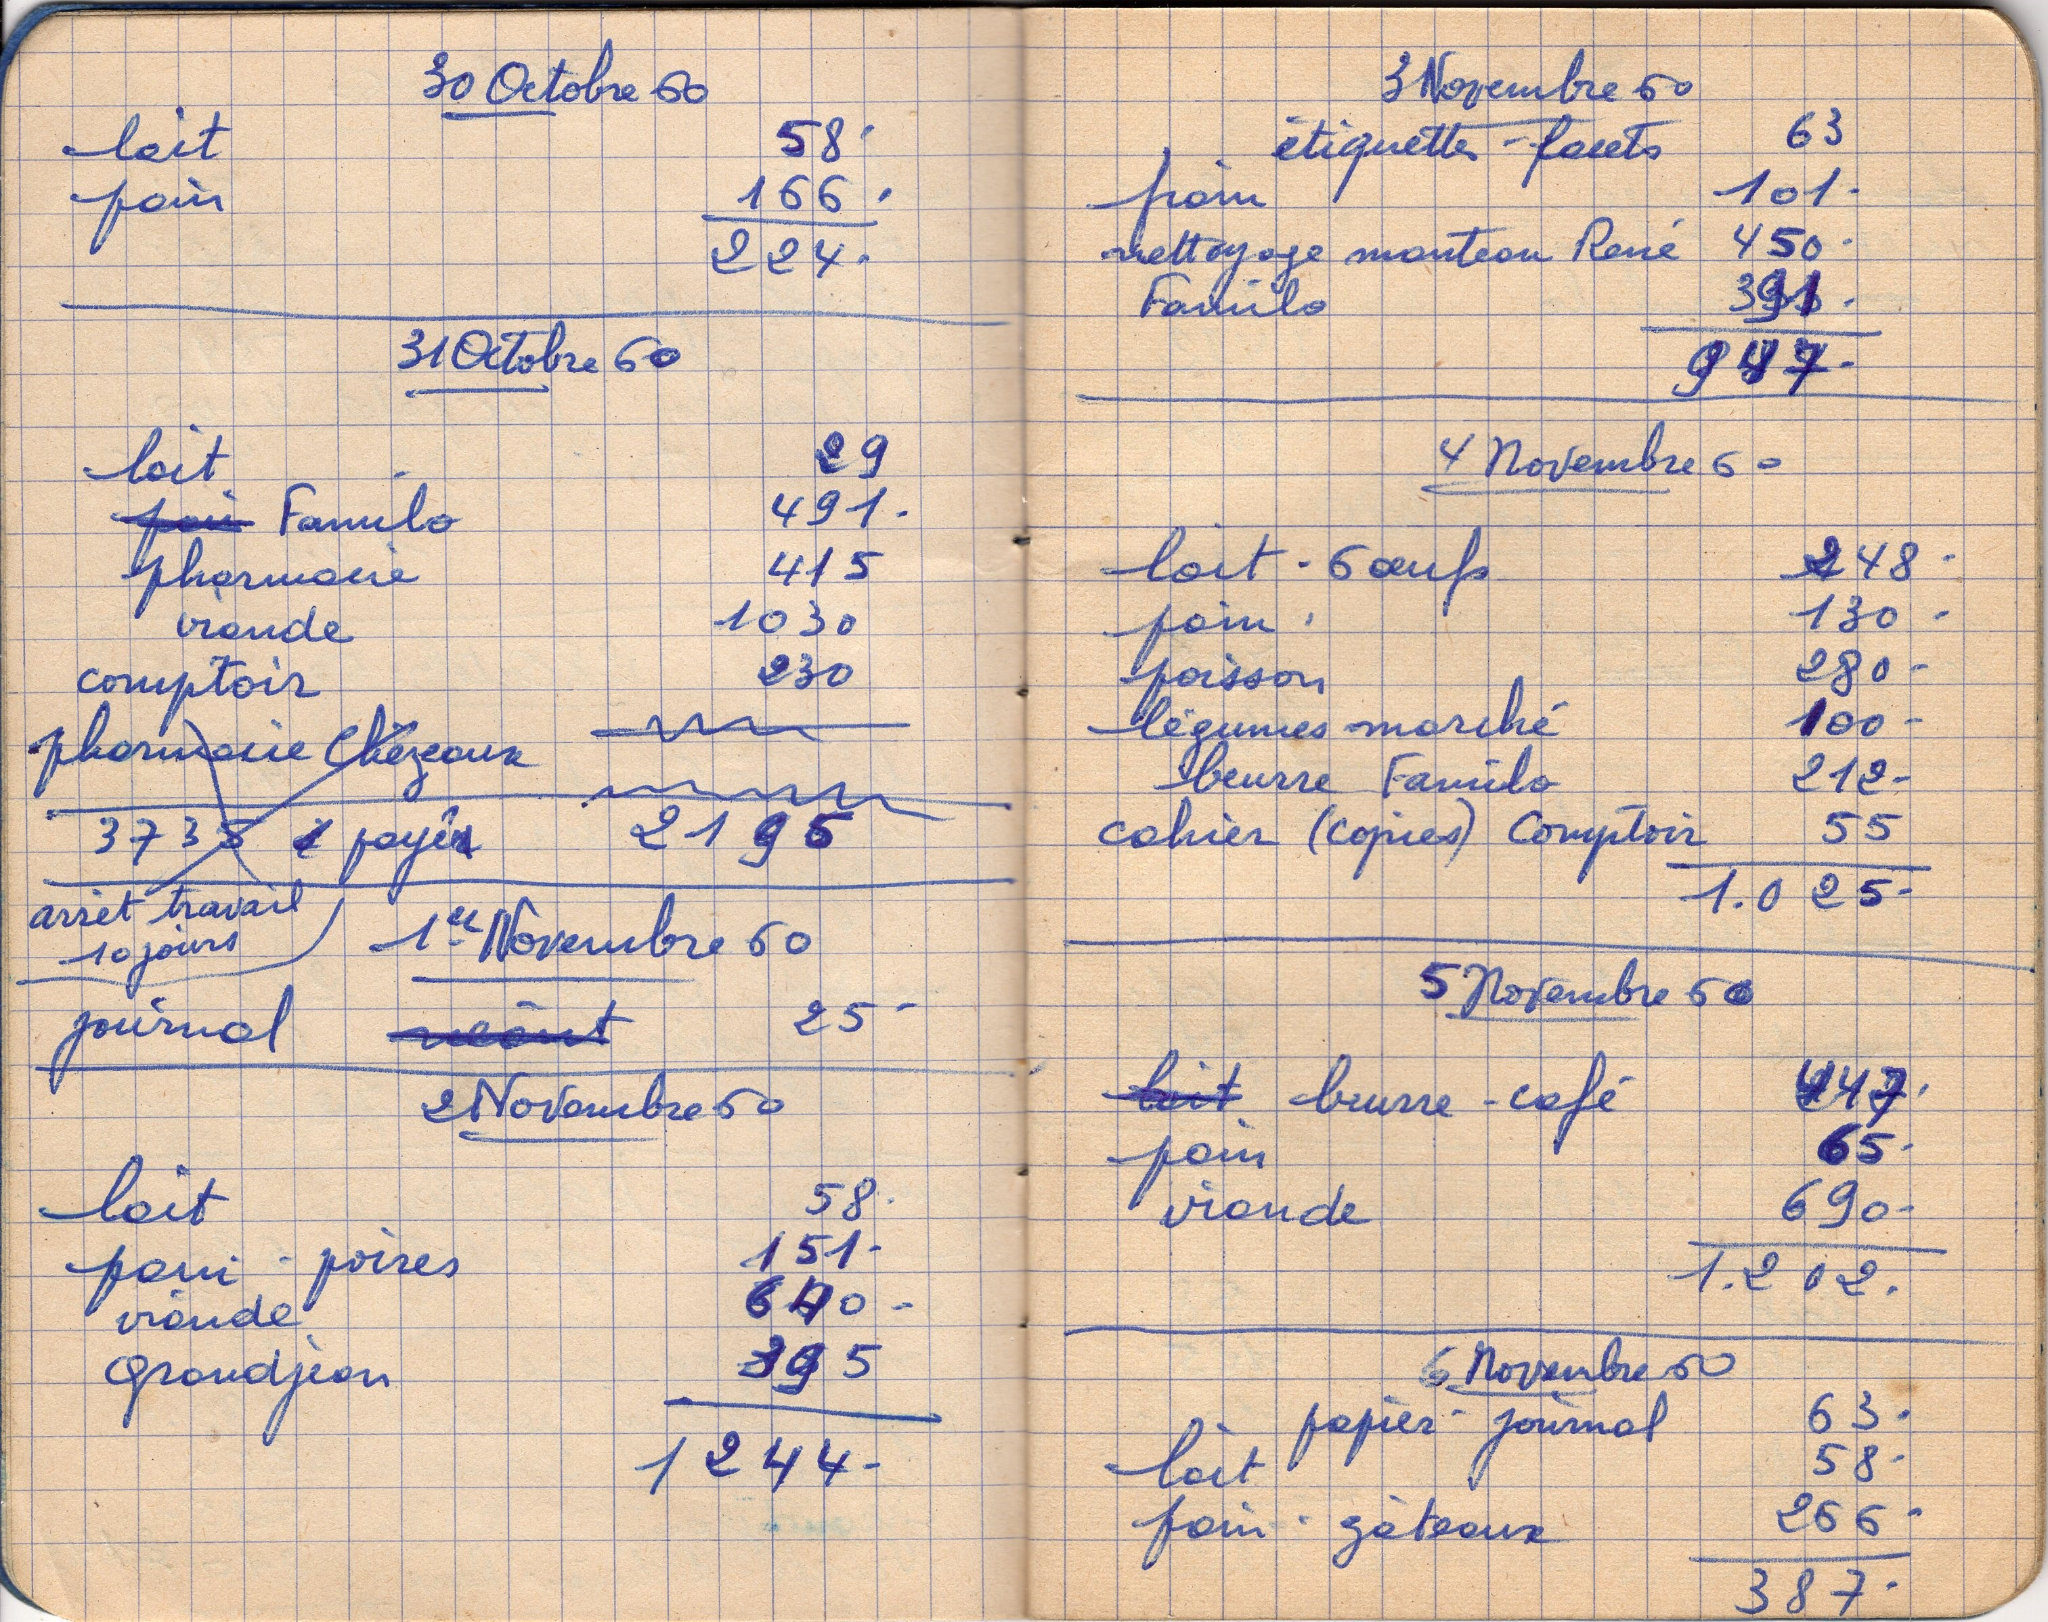 30 Octobre 60
lait 58.
pain 166.
224.
31 Octobre 60
lait 29
pain Familo 491.
pharmacie 415
viande 1030
comptoir 230
pharmacie Chézeaux
3735 payé 2195
arrêt travail
10 jours
1er Novembre 60
journal néant 25-
2 Novembre 60
lait 58.
pain - poires 151-
viande 640-
Grandjean 395
1244-
3 Novembre 60
étiquettes - 63
pain 101-
nettoyage manteau René 450-
Familo
4 Novembre 60
lait - 6 œufs 248-
pain 130-
poisson 280-
légumes marché 100-
beurre Familo 212-
cahier (copies) Comptoir 55
1.025-
5 Novembre 60
lait beurre - café 447.
pain 65-
viande 690-
1.202.
6 Novembre 60
papier - journal 63.
lait 58-
pain - gâteaux 266-
387.